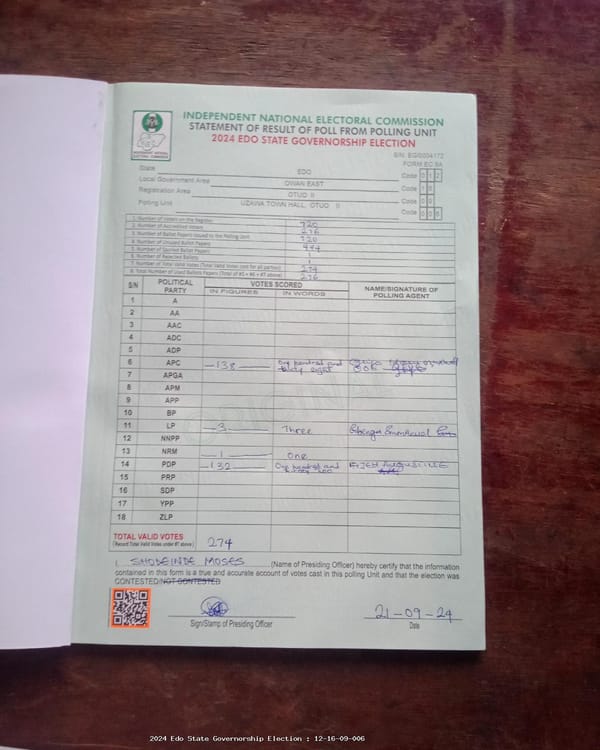 INDEPENDENT NATIONAL ELECTORAL COMMISSION
STATEMENT OF RESULT OF POLL FROM POLLING UNIT
2024 EDO STATE GOVERNORSHIP ELECTION
INDEPENDENT NATIONAL ELECTORAL COMMISSION
FORM EC 8A
State EDO Code 012
Local Government Area OWAN EAST Code 16
Registration Area OTUO II Code 09
Polling Unit UZAWA TOWN HALL, OTUO II Code 006
1. Number of Voters on the Register 720
2. Number of Accredited Voters 276
3. Number of Ballot Papers Issued to the Polling Unit 720
4. Number of Unused Ballot Papers 444
5. Number of Spoiled Ballot Papers 1
6. Number of Rejected Ballots 1
7. Number of Total Valid Votes (Total Valid Votes cast for all parties) 274
8. Total Number of Used Ballots Papers (Total of #5 + #6 + #7 above) 276
S/N POLITICAL PARTY VOTES SCORED NAME/SIGNATURE OF POLLING AGENT
IN FIGURES IN WORDS
1 A
2 AA
3 AAC
4 ADC
5 ADP
6 APC 138 One hundred and thirty eight
7 APGA
8 APM
9 APP
10 BP
11 LP 3 Three Emmanuel
12 NNPP
13 NRM 1 One
14 PDP 132 One hundred and AUGUSTINE
15 PRP
16 SDP
17 YPP
18 ZLP
TOTAL VALID VOTES 274
(Record Total Valid Votes under #7 above)
I, SHODEINDE MOSES (Name of Presiding Officer) hereby certify that the information
contained in this form is a true and accurate account of votes cast in this polling Unit and that the election was
CONTESTED/NOT CONTESTED
21-09-24
Sign/Stamp of Presiding Officer Date
2024 Edo State Governorship Election : 12-16-09-006